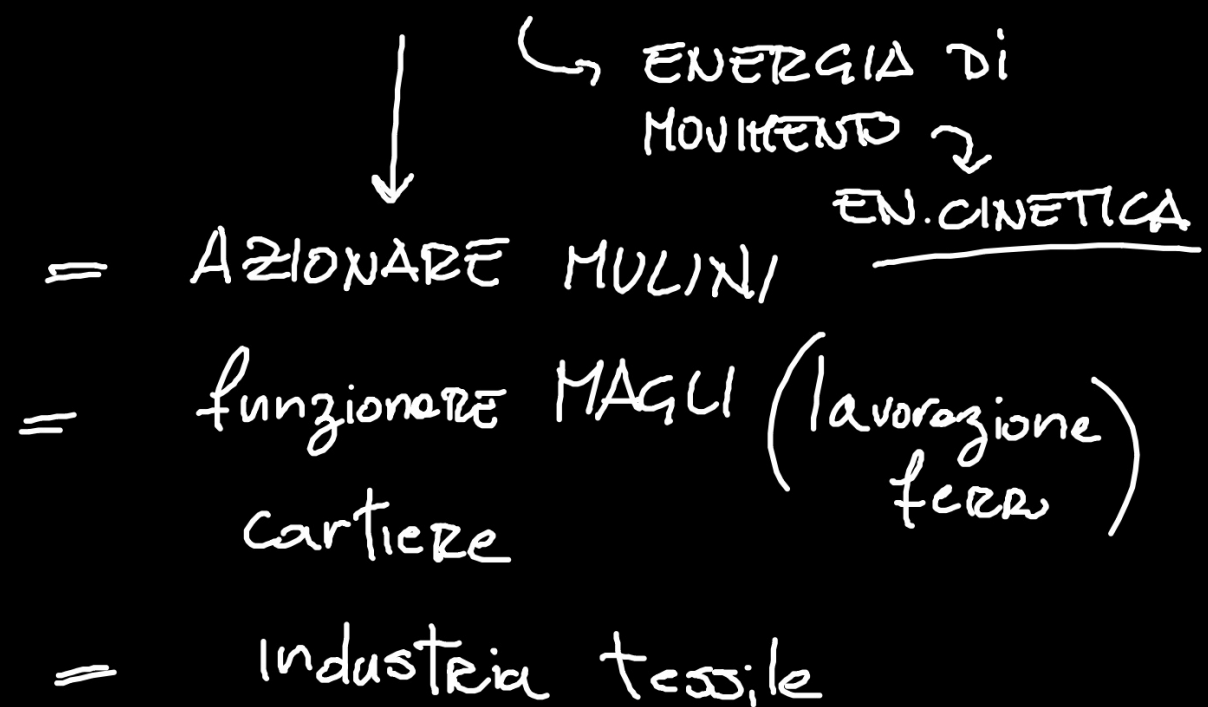 ENERGIA Di
MOVIMENTO
EN. CINETICA
= AZIONARE MULINI
= funzionare MAGLI (lavorazione
ferro)
cartiere
= industria tessile